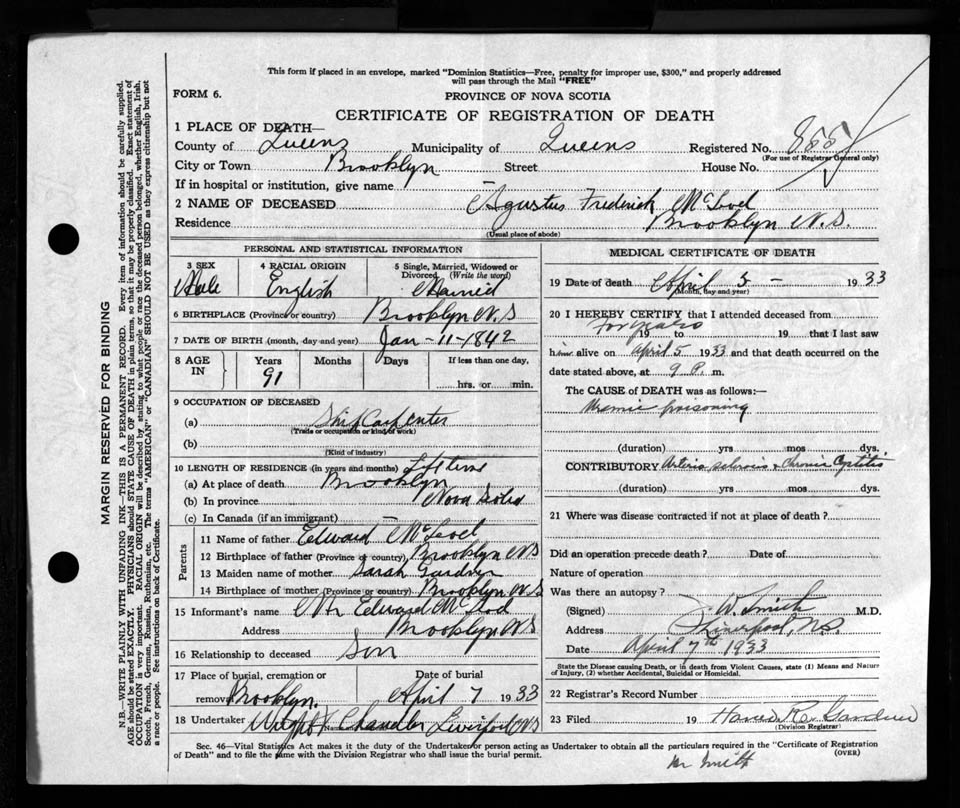 This form if placed in an envelope, marked "Dominion Statistics—Free, penalty for improper use, $300," and properly addressed
will pass through the Mail "FREE"
FORM 6.
PROVINCE OF NOVA SCOTIA
CERTIFICATE OF REGISTRATION OF DEATH
1 PLACE OF DEATH—
County of Queens Municipality of Queens Registered No. 855
(For use of Registrar General only)
City or Town Brooklyn Street House No.
If in hospital or institution, give name —
2 NAME OF DECEASED Agustus Frederick McLeod
Residence Brooklyn N.S.
(Usual place of abode)
PERSONAL AND STATISTICAL INFORMATION
3 SEX Male
4 RACIAL ORIGIN English
5 Single, Married, Widowed or Divorced. (Write the word) Married
6 BIRTHPLACE (Province or country) Brooklyn N.S
7 DATE OF BIRTH (month, day and year) Jan-11-1842
8 AGE IN Years 91 Months Days If less than one day, hrs. or min.
9 OCCUPATION OF DECEASED
(a) Ship Carpenter
(Trade or occupation or kind of work)
(b)
(Kind of industry)
10 LENGTH OF RESIDENCE (in years and months) Lifetime
(a) At place of death Brooklyn
(b) In province Nova Scotia
(c) In Canada (if an immigrant) —
Parents
11 Name of father Edward McLeod
12 Birthplace of father (Province or country) Brooklyn NS
13 Maiden name of mother Sarah Gardner
14 Birthplace of mother (Province or country) Brooklyn N.S
15 Informant's name Mr Edward McLeod
Address Brooklyn NS
16 Relationship to deceased Son
17 Place of burial, cremation or removal Brooklyn. Date of burial April 7 1933
18 Undertaker Chandler Liverpool NS
MEDICAL CERTIFICATE OF DEATH
19 Date of death April 5 — 1933
(Month, day and year)
20 I HEREBY CERTIFY that I attended deceased from
For years 19 to 19 that I last saw
him alive on April 5 1933 and that death occurred on the
date stated above, at 9 P. m.
The CAUSE of DEATH was as follows:
Uremic poisoning
(duration) yrs mos dys.
CONTRIBUTORY Arterio sclerosis & Chronic Cystitis
(duration) yrs. mos. dys.
21 Where was disease contracted if not at place of death?
Did an operation precede death? Date of
Nature of operation
Was there an autopsy?
(Signed) J. W. Smith M.D.
Address Liverpool, N.S.
Date April 7th 1933
State the Disease causing Death, or in death from Violent Causes, state (1) Means and Nature
of Injury, (2) whether Accidental, Suicidal or Homicidal.
22 Registrar's Record Number
23 Filed 19 R. Gardner
(Division Registrar)
Sec. 46—Vital Statistics Act makes it the duty of the Undertaker or person acting as Undertaker to obtain all the particulars required in the "Certificate of Registration
of Death" and to file the same with the Division Registrar who shall issue the burial permit.
(OVER)
Mr Smith
MARGIN RESERVED FOR BINDING
N.B.—WRITE PLAINLY WITH UNFADING INK—THIS IS A PERMANENT RECORD. Every item of information should be carefully supplied.
AGE should be stated EXACTLY. PHYSICIANS should STATE CAUSE OF DEATH in plain terms, so that it may be properly classified. Exact statement of
OCCUPATION is very important. RACIAL ORIGIN will be described by stating to what people or race the deceased person belonged, whether English, Irish,
Scotch, French, German, Russian, Ruthenian, etc. The terms "AMERICAN" or "CANADIAN" SHOULD NOT BE USED as they express citizenship but not
a race or people. See instructions on back of Certificate.